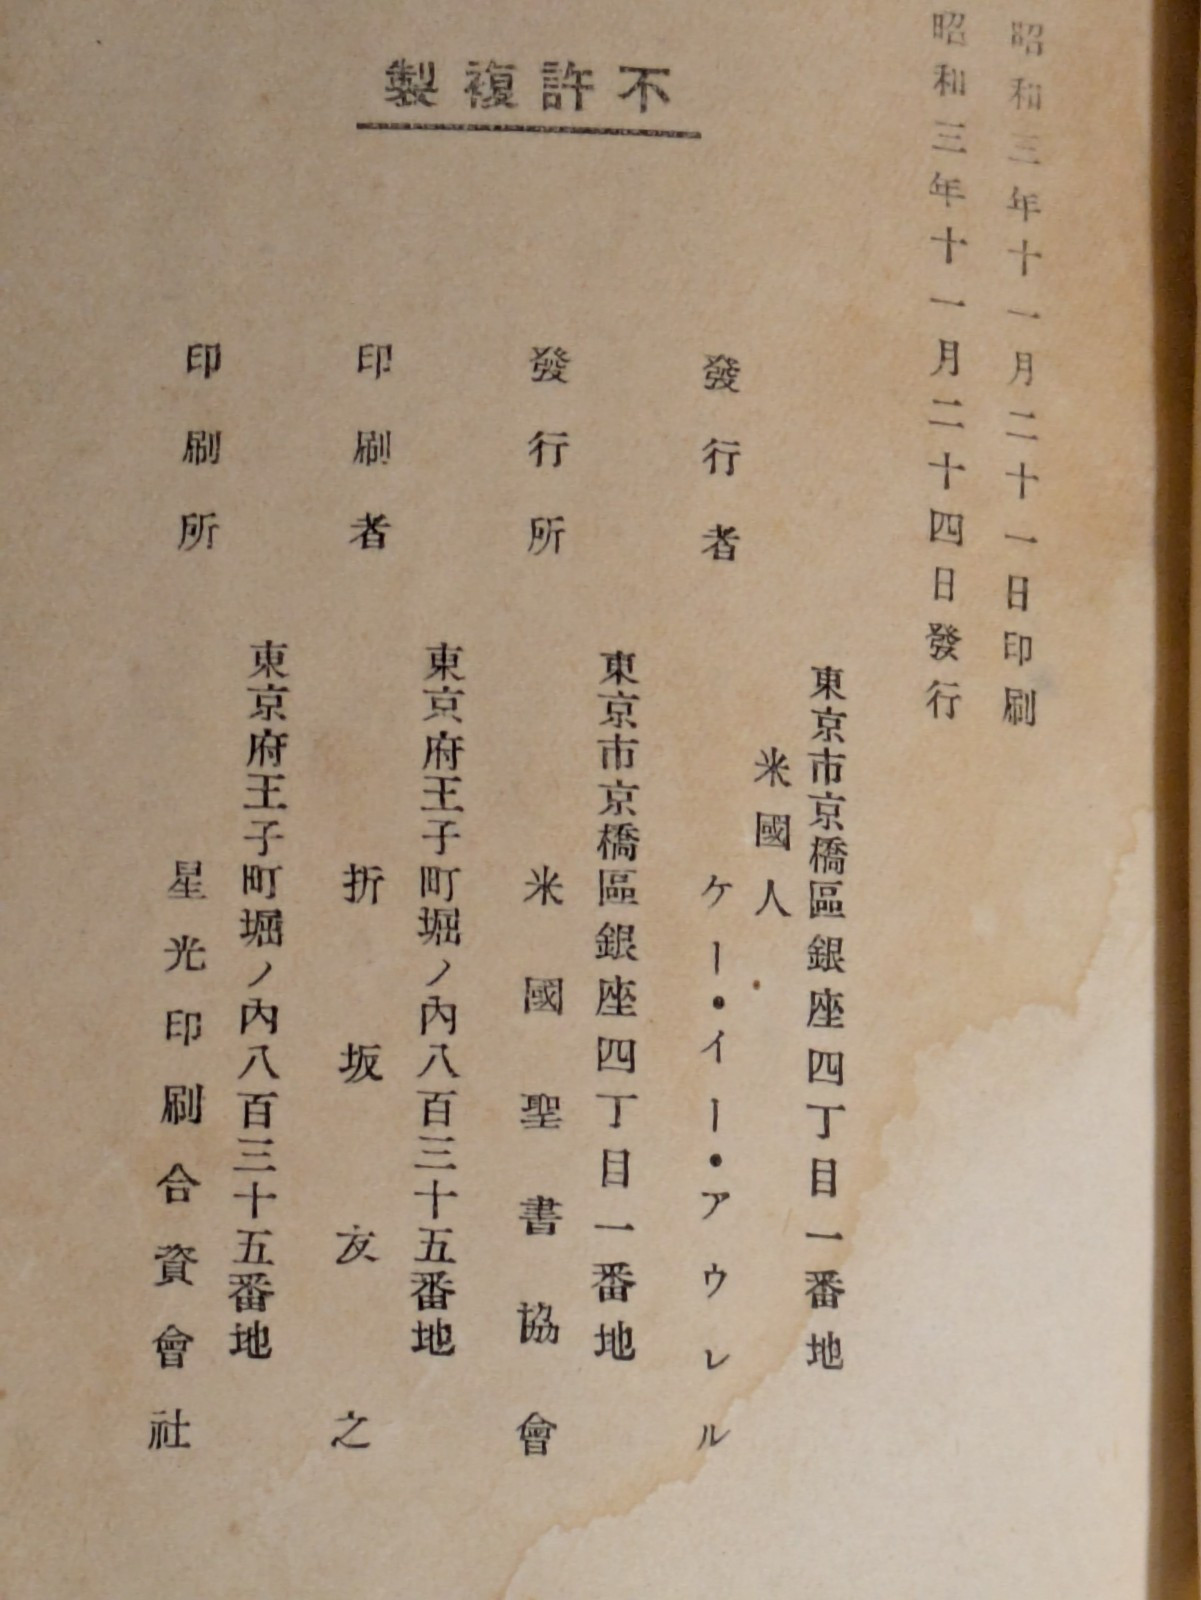 昭和三年十一月二十一日印刷
昭和三年十一月二十四日發行
不許複製
發行者
東京市京橋區銀座四丁目一番地
米國人
ケー・イー・アウレル
發行所
東京市京橋區銀座四丁目一番地
米國聖書協會
印刷者
東京府王子町堀ノ內八百三十五番地
折坂友之
印刷所
東京府王子町堀ノ內八百三十五番地
星光印刷合資會社